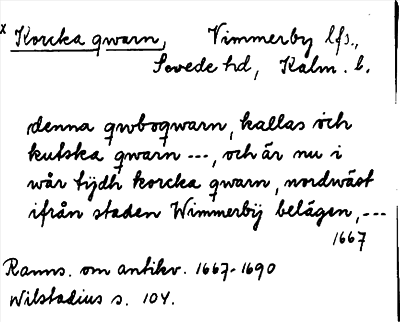 x Korcka qwarn, Vimmerby lfs.,
Sevede hd, Kalm. l.
denna qwboqwarn, kallas och
kutska qwarn ---, och är nu i
wår tijdh korcka qwarn, nordwäst
ifrån staden Wimmerbÿ belägen, ---
1667
Ranns. om antikv. 1667-1690
Wilstadius s. 104.